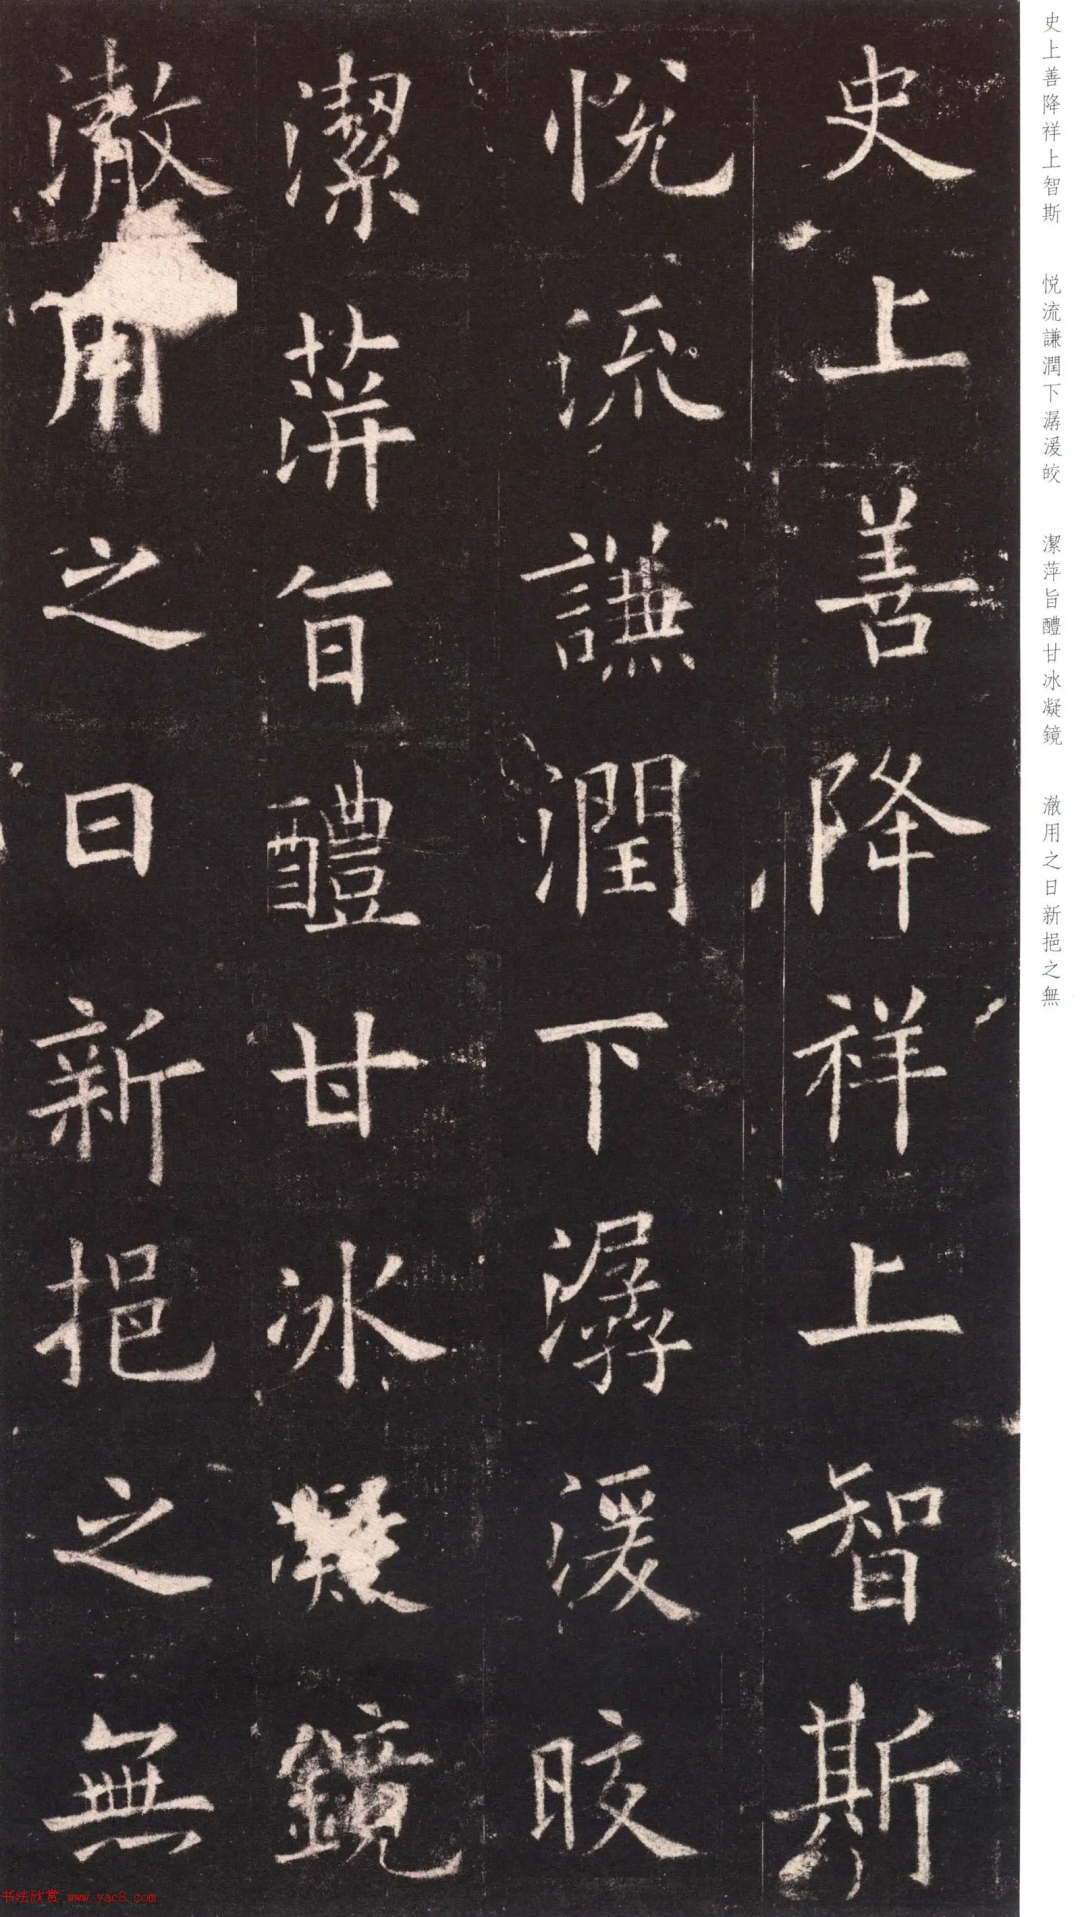 史上善降祥上智斯
悅流謙潤下潺湲晈
潔蓱旨醴甘冰凝鏡
澈用之日新挹之無
史上善降祥上智斯 悅流謙潤下潺湲皎 潔萍旨醴甘冰凝鏡 澈用之日新挹之無
书法欣赏 www.yac8.com